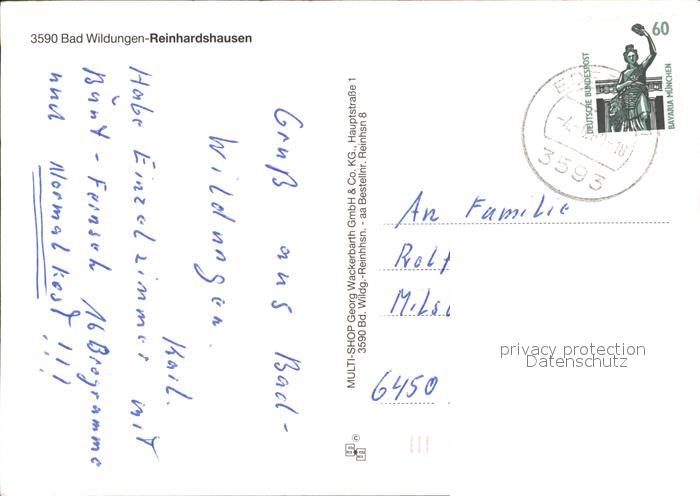 3590 Bad Wildungen-Reinhardshausen
Gruß aus Bad-
Wildungen.
Karl.
Habe Einzelzimmer mit
Bunt-Fernseh 16 Programme
und Normalkost!!!
MULTI-SHOP Georg Wackerbarth GmbH & Co. KG., Hauptstraße 1
3590 Bd. Wildg.-Reinhhsn. - aa Bestellnr. Reinhsn 8
60
DEUTSCHE BUNDESPOST
BAYARIA MÜNCHEN
3593
An Familie
Rolf
6450
privacy protection
Datenschutz